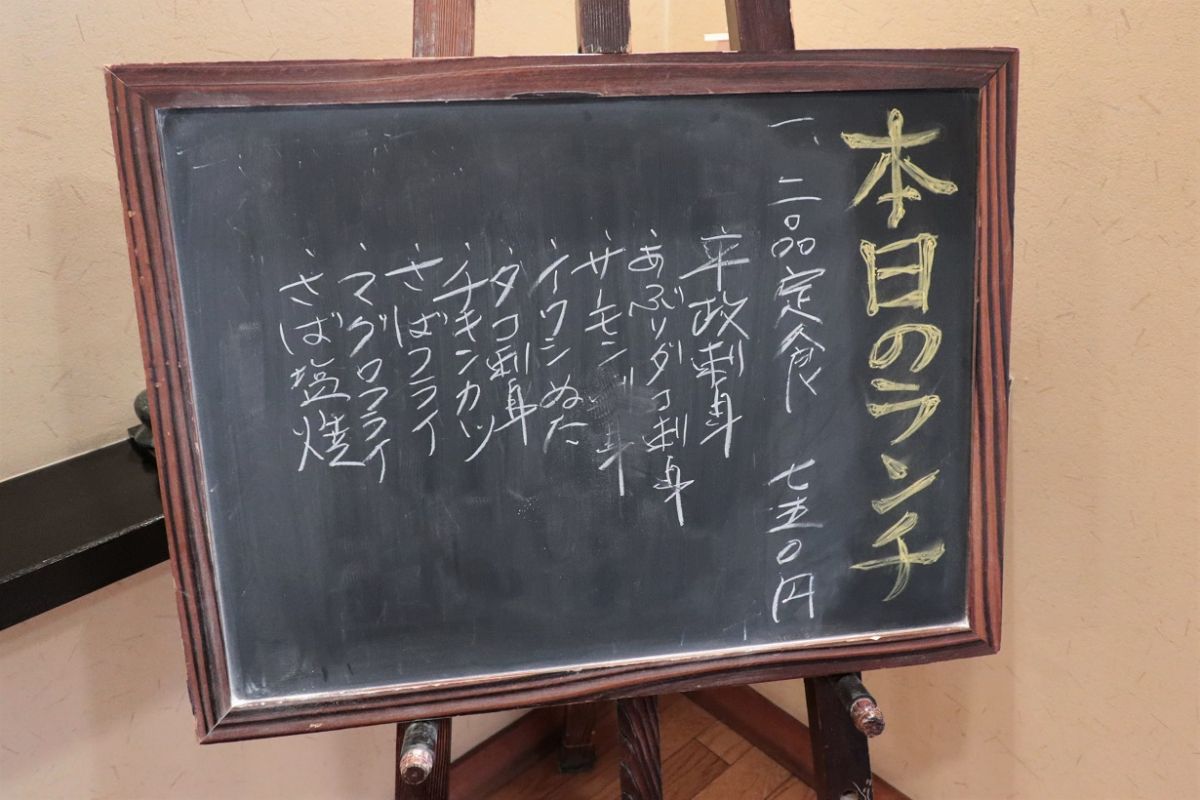 本日のランチ
一、二品定食 七五〇円
、平政刺身
、あぶりダコ刺身
、サーモン刺身
、イワシぬた
、タコ刺身
、チキンカツ
、さばフライ
、マグロフライ
、さば塩焼